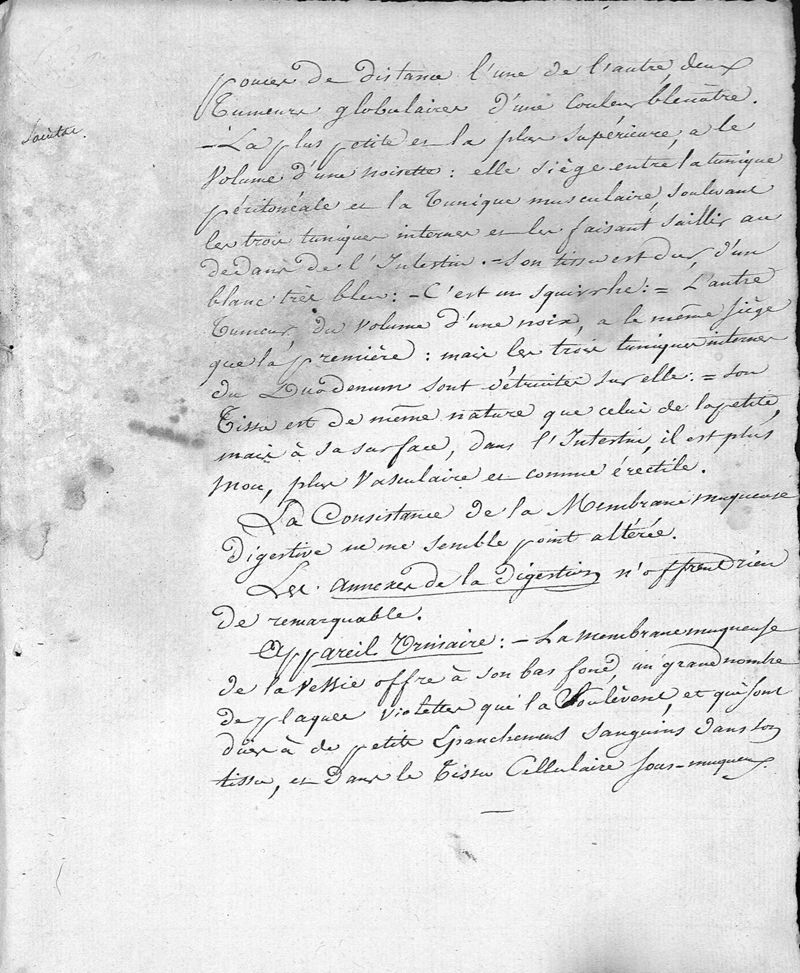 pouces de distance l'une de l'autre, deux
Tumeurs globulaires d'une couleur bleuâtre.
- La plus petite et la plus supérieure, a le
Volume d'une noisette : elle siège entre la tunique
péritonéale et la Tunique musculaire, soulevant
les trois tuniques internes et les faisant saillir au
dedans de l'Intestin. - Son tissu est dur, d'un
blanc très bleu : - C'est un squirrhe : = L'autre
Tumeur, du volume d'une noix, a le même siège
que la première : mais les trois tuniques internes
du Duodenum sont détruites sur elle : = Son
Tissu est de même nature que celui de la petite,
mais à sa surface, dans l'Intestin, il est plus
mou, plus Vasculaire et comme érectile.
La Consistance de la Membrane muqueuse
Digestive ne me semble point altérée.
Les annexes de la Digestion n'offrent rien
de remarquable.
Appareil Urinaire : - La membrane muqueuse
de la vessie offre à son bas fond, un grand nombre
de plaques violettes qui la soulèvent, et qui sont
dues à de petits Epanchemens sanguins dans son
tissu, et dans le Tissu Cellulaire sous-muqueux.